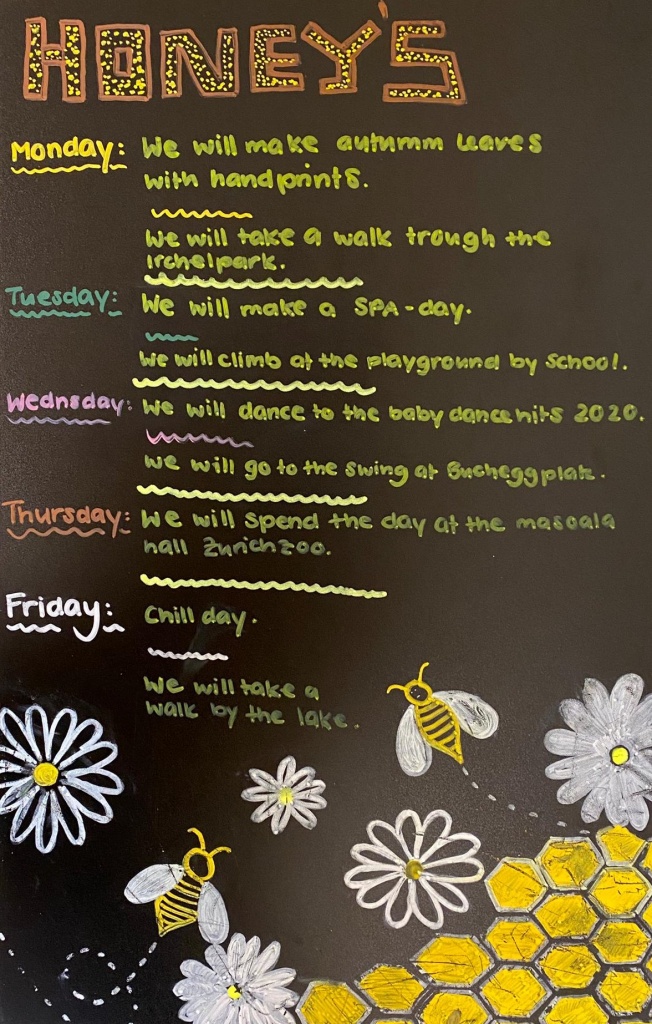 HONEY'S
Monday: We will make autumm leaves
with handprints.
We will take a walk trough the
Irchelpark.
Tuesday: We will make a SPA-day.
We will climb at the playground by School.
Wednsday: We will dance to the baby dance hits 2020.
We will go to the swing at Bucheggplatz.
Thursday: We will spend the day at the masoala
hall Zürich zoo.
Friday: Chill day.
We will take a
walk by the lake.